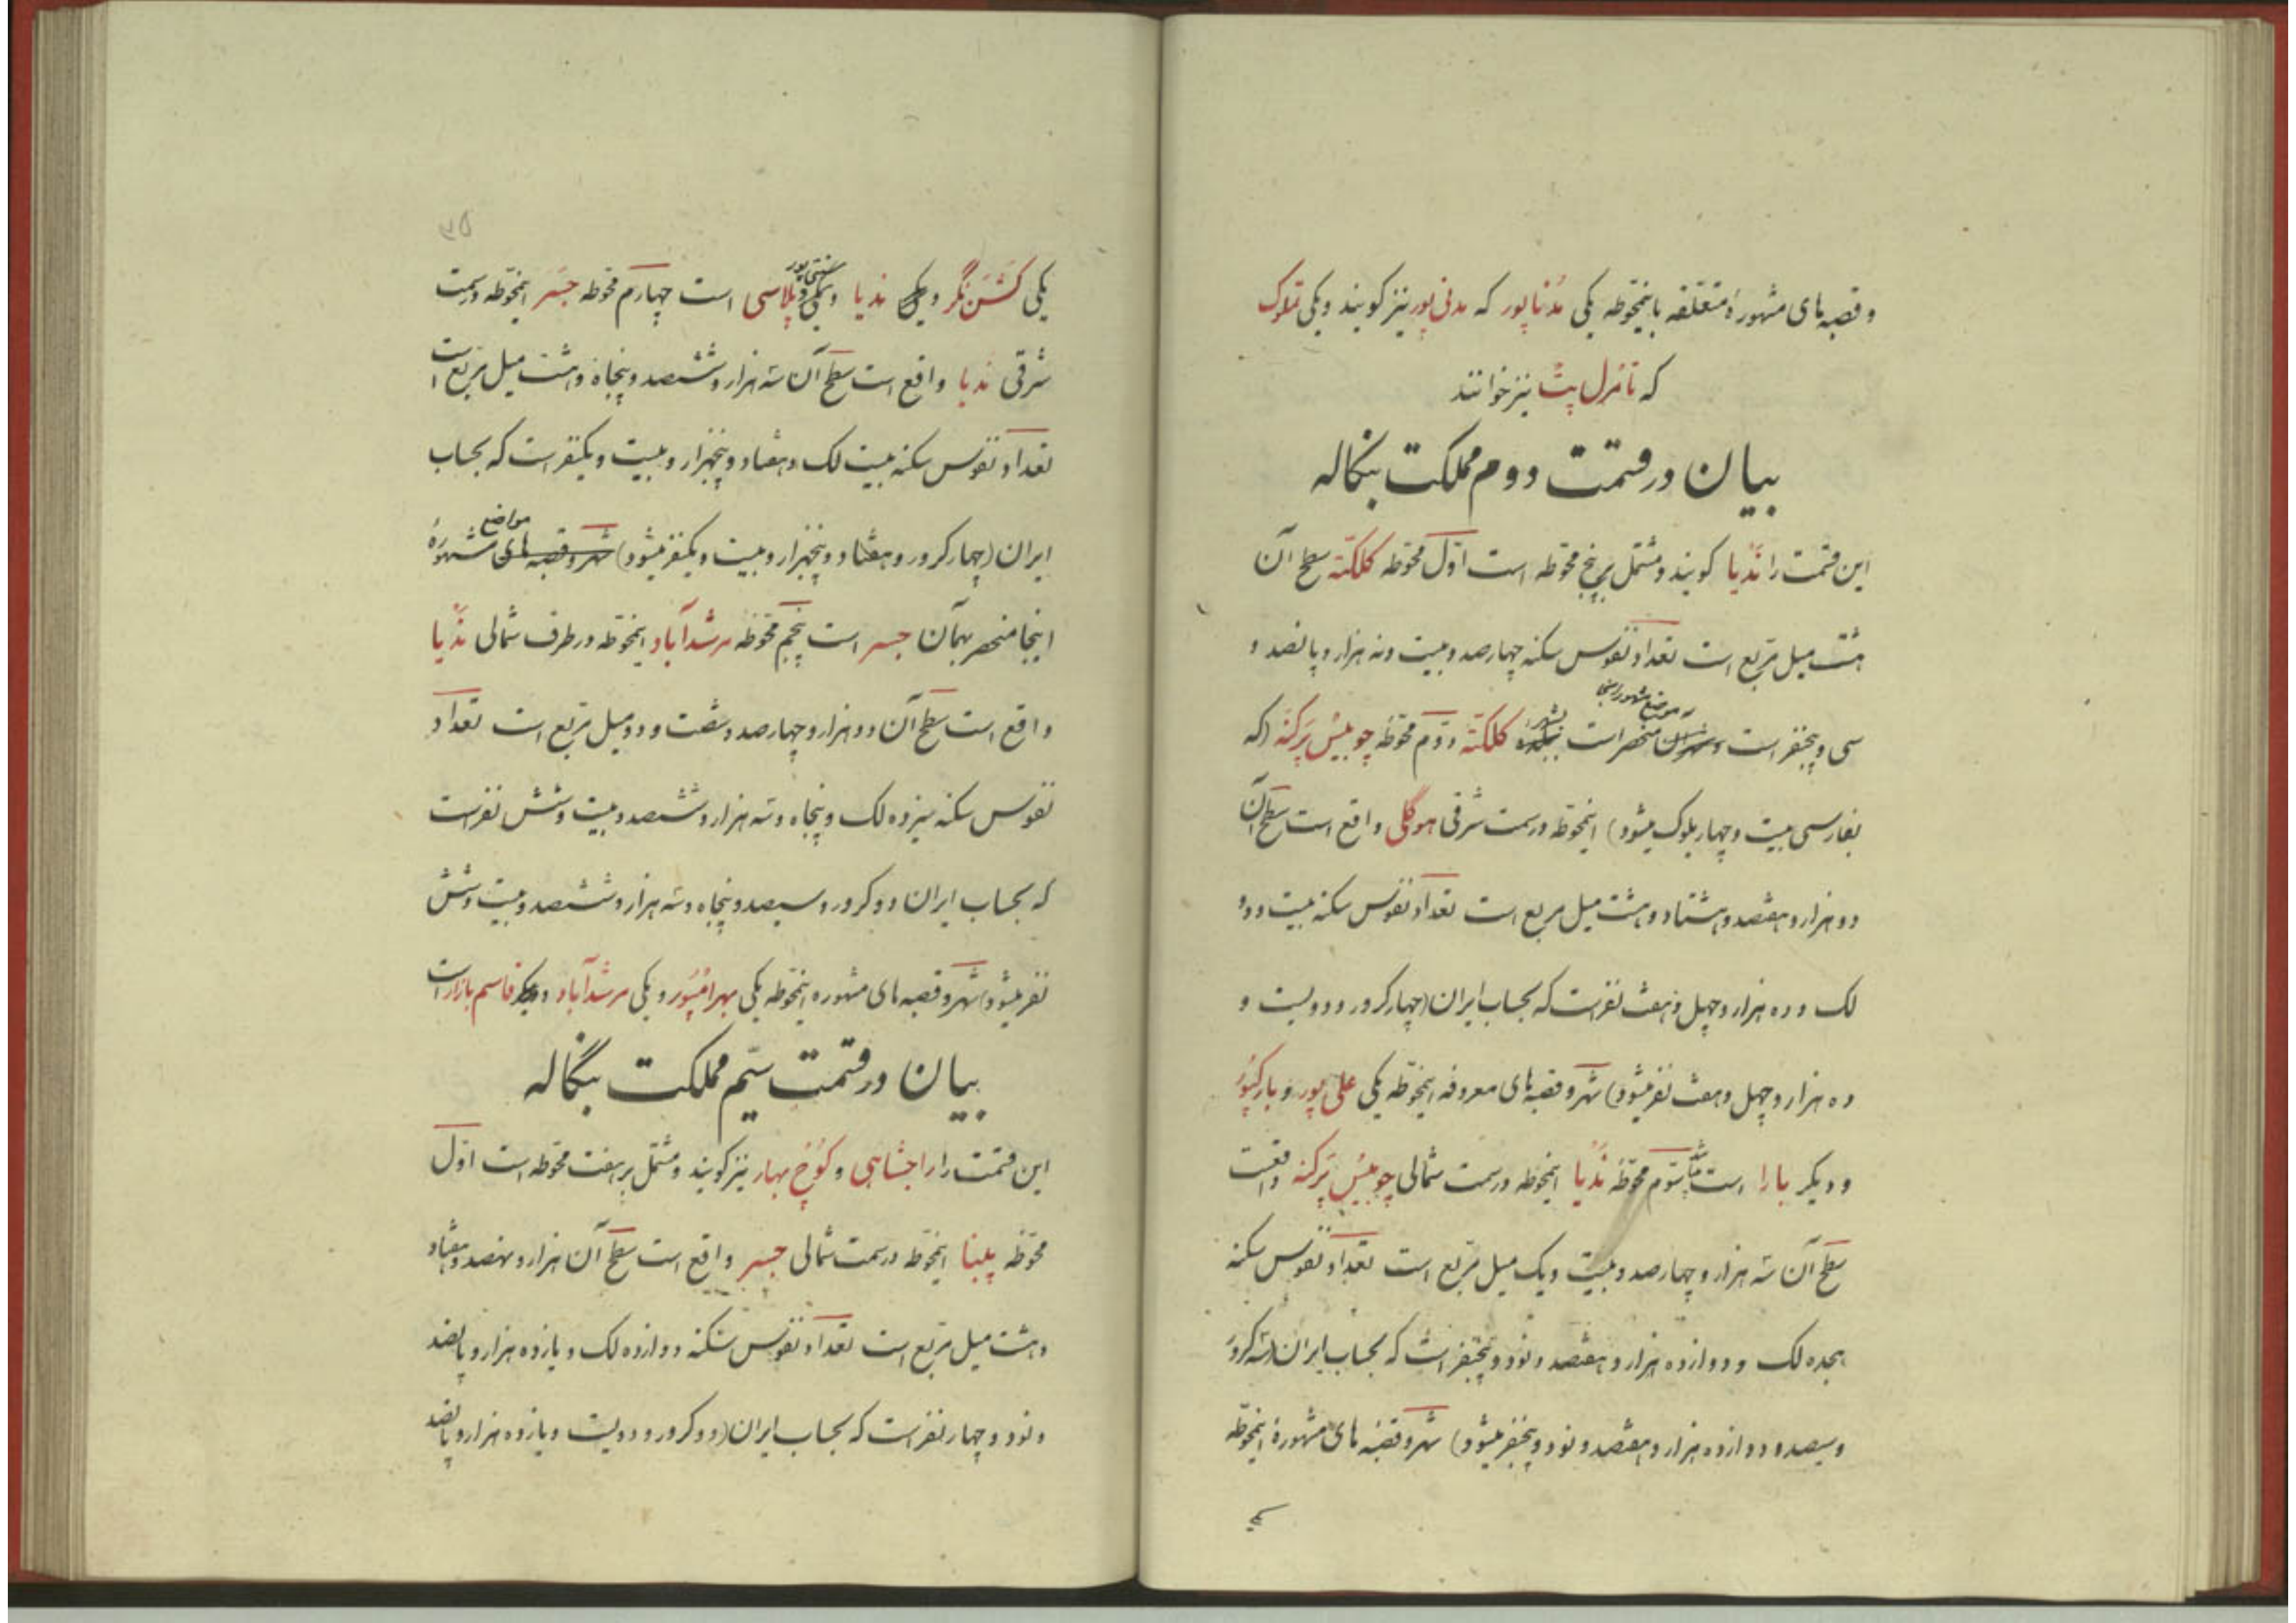 و قصبه‌های مشهورهٔ متعلقه باینمحوّطه یکی مُدناپور که مدنی‌پور نیز گویند و یکی تملوک
که تانرل پت نیز خوانند
بیان در قسمت دوم مملکت بنگاله
این قسمت را نَدْیا گویند و مشتمل بر پنج محوّطه است اوّل محوّطه کلکتّه سطح آن
هشت میل مربّع است تعداد نفوس سکنه چهارصد و بیست و نه هزار و پانصد و
موضع مشهور اینجا
سی و پنجنفر است منحصر است بشهر کلکتّه دوّم محوّطهٔ چوبیْس پَرکنَه (که
بفارسی بیست و چهار بلوک میشود) اینمحوّطه در سمت شرقی هوگلی واقع است سطح آن
دو هزار و هفتصد و هشتاد و هشت میل مربع است تعداد نفوس سکنه بیست و دو
لک و ده هزار و چهل و هفت نفر است که بحساب ایران (چهار کرور و دویست و
ده هزار و چهل و هفت نفر میشود) شهر و قصبه‌های معروفه اینمحوّطه یکی علی پور و بارکپُوُر
و دیگر بارا است سوّم محوّطهٔ نَدْیا اینمحوّطه در سمت شمالی چوبیْس پَرکنه واقعست
سطح آن سه هزار و چهارصد و بیست و یک میل مربّع است تعداد نفوس سکنه
هجده لک و دوازده هزار و هفتصد و نود و پنجنفر است که بحساب ایران (سه کرور
و سیصد و دوازده هزار و هفتصد و نود و پنجنفر میشود) شهر و قصبه‌های مشهورهٔ اینمحوّطه
یکی
یکی کَشَنْ نگر و یکی ندیا و یکی پلاسی است چهارم محوّطه جَسَر اینمحوّطه در سمت
شرقی ندیا واقع است سطح آن سه هزار و ششصد و پنجاه و هشت میل مربّع است
تعداد نفوس سکنه بیست لک و هفتاد و پنجهزار و بیست و یکنفر است که بحساب
ایران (چهار کرور و هفتاد و پنجهزار و بیست و یکنفر میشود) شهر و قصبه‌های مواضع مشهورهٔ
اینجا منحصر بهمان جسر است پنجم محوّطه مرشدآباد اینمحوّطه در طرف شمالی نَدْیا
واقع است سطح آن دو هزار و چهارصد و شصت و دو میل مربّع است تعداد
نفوس سکنه سیزده لک و پنجاه و سه هزار و ششصد و بیست و شش نفر است
که بحساب ایران دو کرور و سیصد و پنجاه و سه هزار و ششصد و بیست و شش
نفر میشود) شهر و قصبه‌های مشهوره اینمحوّطه یکی بهرامپُوُر و یکی مرشدآباد و دیگر قاسم بازار است
بیان در قسمت سیّم مملکت بنگاله
این قسمت را راجشاهی و کُوُخ بهار نیز گویند و مشتمل بر هفت محوّطه است اوّل
محوّطه پابنا اینمحوّطه در سمت شمالی جسر واقع است سطح آن هزار و نهصد و هفتاد
و هشت میل مربّع است تعداد نفوس سکنه دوازده لک و یازده هزار و پانصد
و نود و چهار نفر است که بحساب ایران (دو کرور و دویست و یازده هزار و پانصد